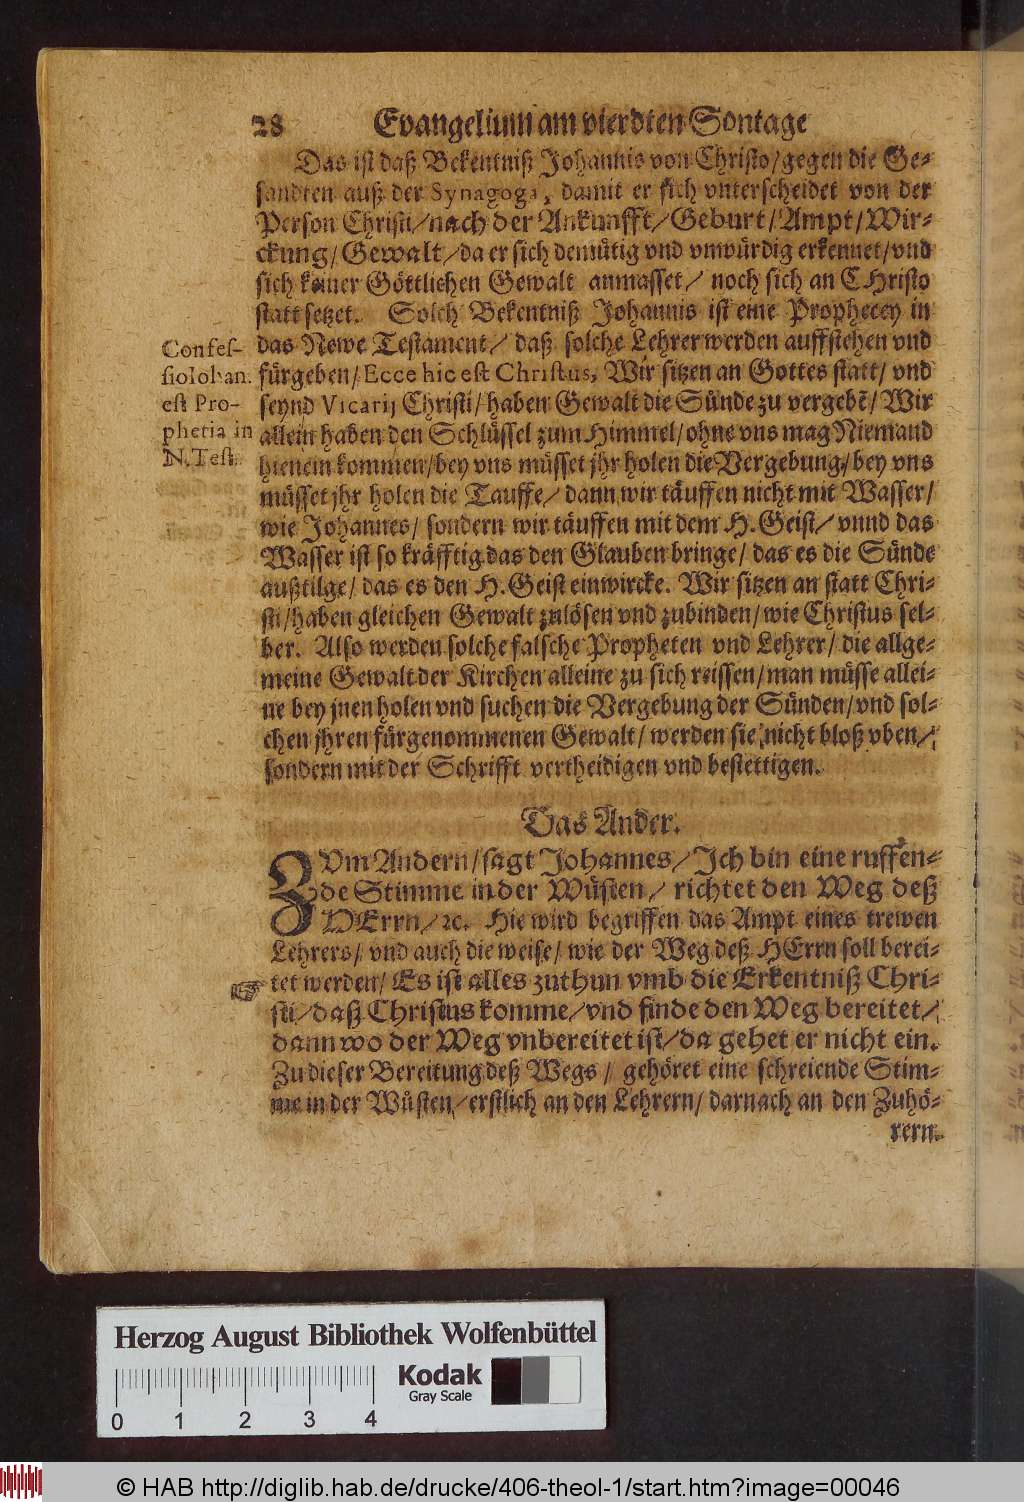 28 Evangelium am vierdten Sontage
Das ist daß Bekentniß Johannis von Christo/ gegen die Ge-
sandten auß der Synagoga, damit er sich vnterscheidet von der
Person Christi/ nach der Ankunfft/ Geburt/ Ampt/ Wir-
ckung/ Gewalt/ da er sich demütig vnd vnwürdig erkennet/ vnd
sich keiner Göttlichen Gewalt anmasset/ noch sich an CHristo
statt setzet. Solch Bekentniß Johannis ist eine Prophecey in
das Newe Testament/ daß solche Lehrer werden auffstehen vnd
fürgeben/ Ecce hic est Christus, Wir sitzen an Gottes statt/ vnd
seynd Vicarij Christi/ haben Gewalt die Sünde zu vergebẽ/ Wir
allein haben den Schlüssel zum Himmel/ ohne vns mag Niemand
hienein kommen/ bey vns müsset jhr holen die Vergebung/ bey vns
müsset jhr holen die Tauffe/ dann wir täuffen nicht mit Wasser/
wie Johannes/ sondern wir täuffen mit dem H. Geist/ vnnd das
Wasser ist so kräfftig das den Glauben bringe/ das es die Sünde
außtilge/ das es den H. Geist einwircke. Wir sitzen an statt Chri-
sti/ haben gleichen Gewalt zulösen vnd zubinden/ wie Christus sel-
ber. Also werden solche falsche Propheten vnd Lehrer/ die allge-
meine Gewalt der Kirchen alleine zu sich reissen/ man müsse allei-
ne bey jnen holen vnd suchen die Vergebung der Sünden/ vnd sol-
chen jhren fürgenommenen Gewalt/ werden sie nicht bloß vben/
sondern mit der Schrifft vertheidigen vnd bestettigen.
Confes-
sio Iohan.
est Pro-
phetia in
N. Test.
Das Ander.
ZVm Andern/ sagt Johannes/ Ich bin eine ruffen-
de Stimme in der Wüsten/ richtet den Weg deß
HErrn/ ꝛc. Hie wird begriffen das Ampt eines trewen
Lehrers/ vnd auch die weise/ wie der Weg deß HErrn soll berei-
☞ tet werden/ Es ist alles zuthun vmb die Erkentniß Chri-
sti/ daß Christus komme/ vnd finde den Weg bereitet/
dann wo der Weg vnbereitet ist/ da gehet er nicht ein.
Zu dieser Bereitung deß Wegs/ gehöret eine schreiende Stim-
me in der Wüsten/ erstlich an den Lehrern/ darnach an den Zuhö-
rern.
Herzog August Bibliothek Wolfenbüttel
Kodak
Gray Scale
0 1 2 3 4
© HAB http://diglib.hab.de/drucke/406-theol-1/start.htm?image=00046